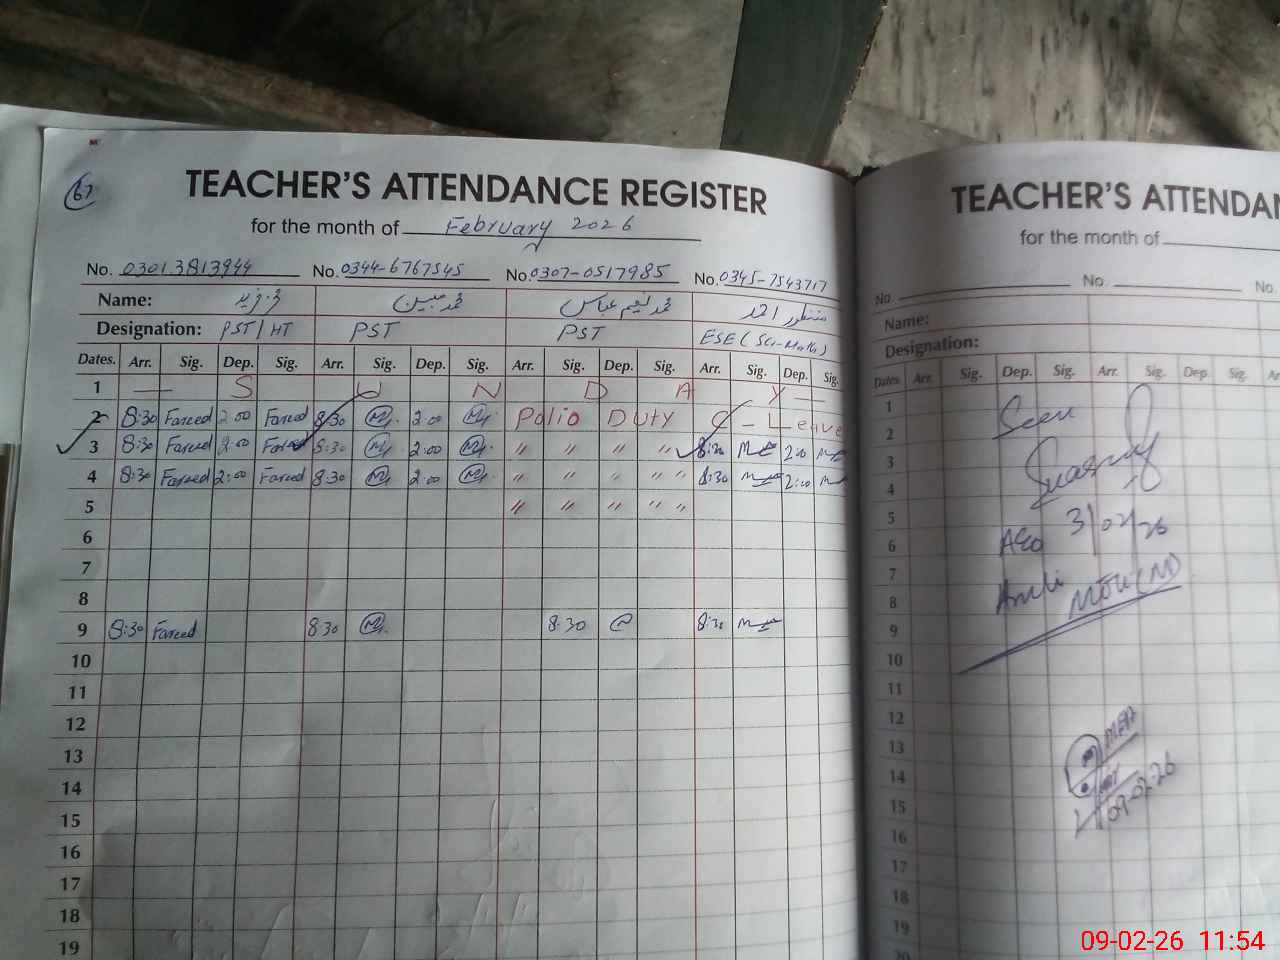 67
TEACHER'S ATTENDANCE REGISTER
for the month of February 2026
No. 03013813944 No. 0344-6767545 No. 0307-0517985 No. 0345-7543717
Name: محمد مبین محمد نعیم عباس منظور احمد
Designation: PST/HT PST PST ESE (Sci-Math)
Dates. Arr. Sig. Dep. Sig. Arr. Sig. Dep. Sig. Arr. Sig. Dep. Sig. Arr. Sig. Dep. Sig.
1 — S U N D A Y —
2 8:30 Fareed 2:00 Fareed 8:30 M 2:00 M Polio Duty C - Leave
3 8:30 Fareed 2:00 Fareed 8:30 M 2:00 M " " " " " 8:30 2:00
4 8:30 Fareed 2:00 Fareed 8:30 M 2:00 M " " " " " 8:30 2:00
5 " " " " "
6
7
8
9 8:30 Fareed 8:30 M 8:30 8:30
10
11
12
13
14
15
16
17
18
19
TEACHER'S ATTENDAN
for the month of
No. No. No.
Name:
Designation:
Dates Arr. Sig. Dep. Sig. Arr. Sig. Dep. Sig.
1
2 Seen
3
4
5
6 AEO 3/02/26
7
8
9
10
11
12
13 MEA
14
15 09-02-26
16
17
18
19
20
09-02-26 11:54